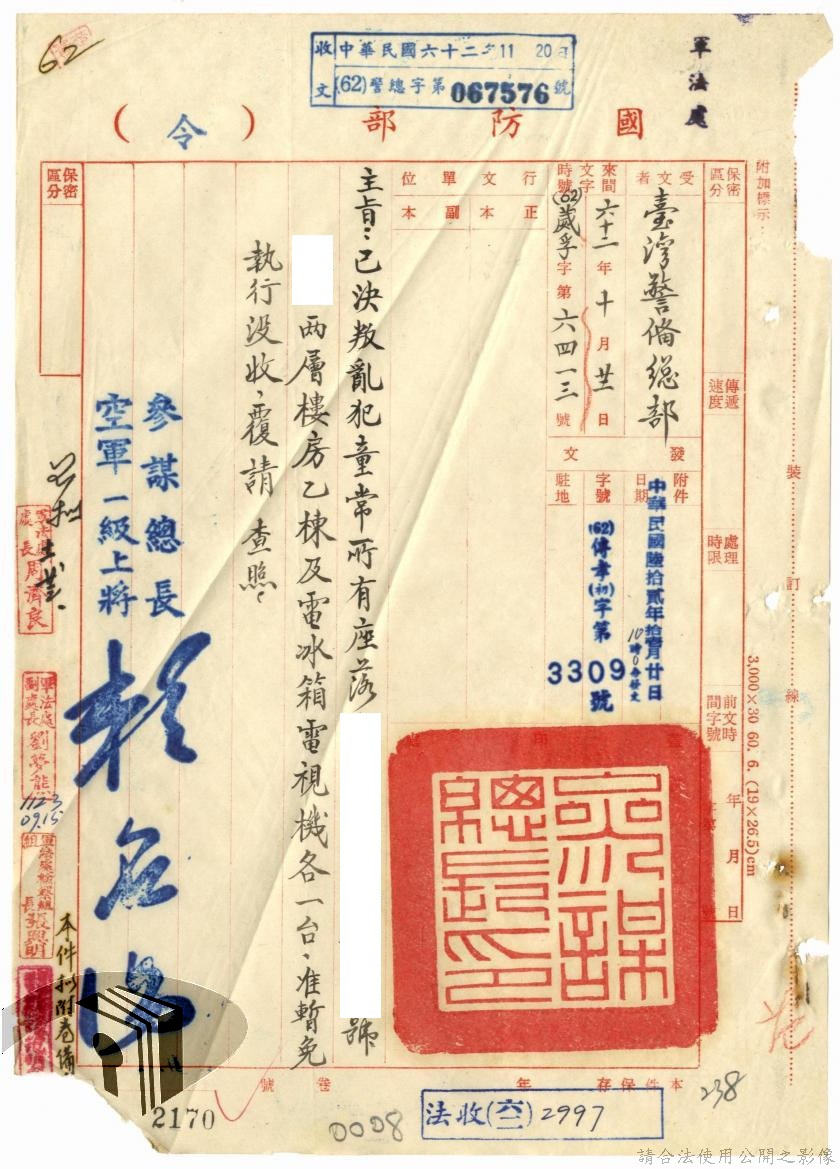 62
收文 中華民國六十二年11 20日
(62)警總字第067576號
軍法處
國防部(令)
附加標示：
保密區分
傳遞速度
處理時限
前文時間字號
年 月 日
受文者
臺灣警備總部
來文
時間
六十二年十月廿二日
字號
(62)崴孚字第六四一三號
發文
附件
日期
中華民國陸拾貳年拾壹月廿日
10時0分發文
字號
(62)傳孝(初)字第3309號
駐地
行文單位
正本
副本
主旨：已決叛亂犯童常所有座落
號
兩層樓房乙棟及電冰箱電視機各一台、准暫免
執行没收、覆請 查照、
參謀總長
空軍一級上將
賴名湯
參謀總長印
保密區分
軍法處處長周濟良
軍法處副處長劉夢熊
1123
0915
組長張熙明
本件擬附卷備
裝訂線
3,000×30 60. 6. (19×26.5)cm
本件保存 年
卷 號
法收(六二)2997
238
0008
2170
請合法使用公開之影像